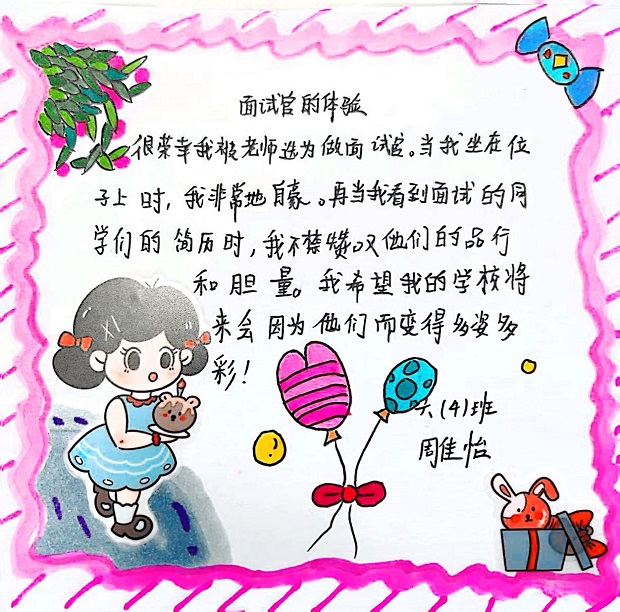 面试官的体验
很荣幸我被老师选为做面试官。当我坐在位
子上时，我非常地自豪。再当我看到面试的同
学们的简历时，我不禁赞叹他们的品行
和胆量。我希望我的学校将
来会因为他们而变得多姿多
彩！
六(4)班
周佳怡